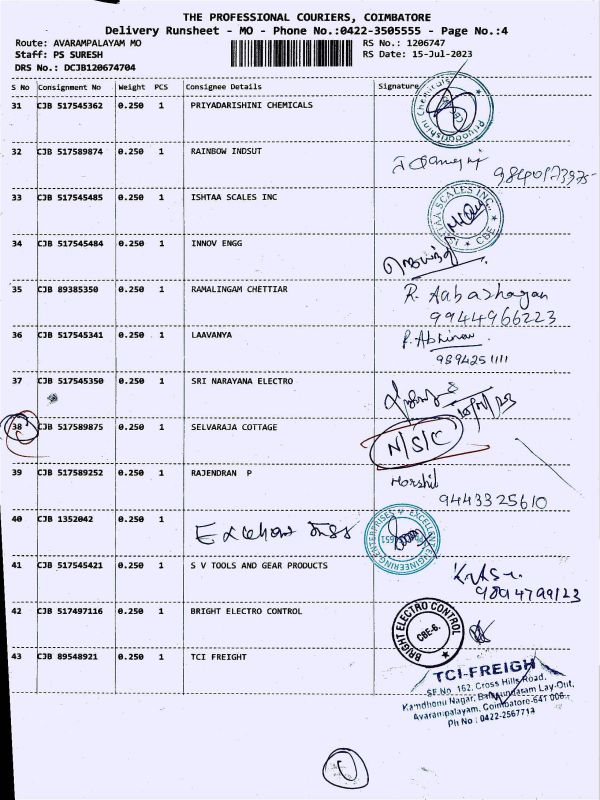 THE PROFESSIONAL COURIERS, COIMBATORE
Delivery Runsheet - MO - Phone No.:0422-3505555 - Page No.:4
Route: AVARAMPALAYAM MO RS No.: 1206747
Staff: PS SURESH RS Date: 15-Jul-2023
DRS No.: DCJB120674704
S No Consignment No Weight PCS Consignee Details Signature
31 CJB 517545362 0.250 1 PRIYADARISHINI CHEMICALS
Priyadarishini Chemicals
32 CJB 517589874 0.250 1 RAINBOW INDSUT
33 CJB 517545485 0.250 1 ISHTAA SCALES INC
ISHTAA SCALES INC. CBE
34 CJB 517545484 0.250 1 INNOV ENGG
35 CJB 89385350 0.250 1 RAMALINGAM CHETTIAR R. Aabazhagan
9944966223
36 CJB 517545341 0.250 1 LAAVANYA P. Abhinav
9894251111
37 CJB 517545350 0.250 1 SRI NARAYANA ELECTRO
38 CJB 517589875 0.250 1 SELVARAJA COTTAGE N/S/C
39 CJB 517589252 0.250 1 RAJENDRAN P Harshil
9443325610
40 CJB 1352042 0.250 1
EXCELLENT ENGINEERING ENTERPRISES
41 CJB 517545421 0.250 1 S V TOOLS AND GEAR PRODUCTS
9894799123
42 CJB 517497116 0.250 1 BRIGHT ELECTRO CONTROL
BRIGHT ELECTRO CONTROL
CBE-6.
43 CJB 89548921 0.250 1 TCI FREIGHT
TCI-FREIGH
SF.No. 162, Cross Hills Road,
Kamdhonu Nagar, Balasundaram Lay-Out,
Avarampalayam, Coimbatore-641 006.
Ph No : 0422-2567713